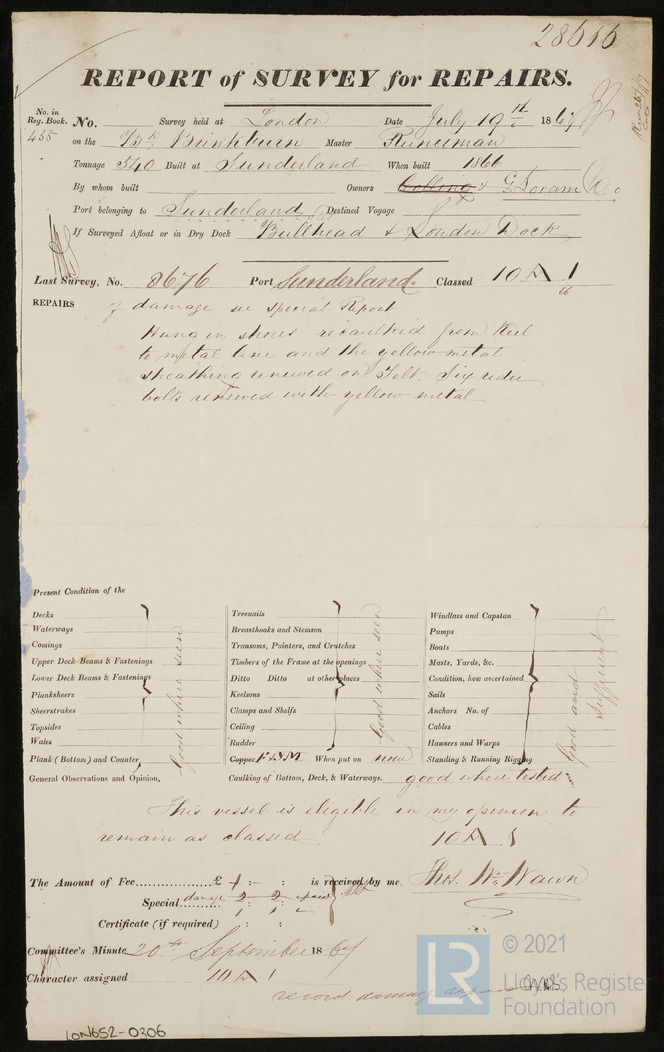 28616
REPORT of SURVEY for REPAIRS.
No. in Reg. Book. 455
No. Survey held at London Date July 19th 1867
on the Bk Brinkburn Master
Tonnage 340 Built at Sunderland When built 1866
By whom built Owners & Co
Port belonging to Sunderland Destined Voyage
If Surveyed Afloat or in Dry Dock Bulkhead & London Dock
Last Survey, No. 8676 Port Sunderland. Classed 10 A 1
66
REPAIRS if damage see special Report
Hung in shores recaulked from Keel
to metal line and the yellow metal
sheathing renewed on Felt. Six
bolts renewed with yellow metal
Present Condition of the
Decks
Waterways
Comings
Upper Deck Beams & Fastenings
Lower Deck Beams & Fastenings
Planksheers
Sheerstrakes
Topsides
Wales
Plank (Bottom) and Counter
good where seen
Treenails
Breasthooks and Stemson
Transoms, Pointers, and Crutches
Timbers of the Frame at the openings
Ditto Ditto at other places
Keelsons
Clamps and Shelfs
Ceiling
Rudder
good where seen
Copper F & YM When put on now
Windlass and Capstan
Pumps
Boats
Masts, Yards, &c.
Condition, how ascertained
Sails
Anchors No. of
Cables
Hawsers and Warps
Standing & Running Rigging
good and sufficient
General Observations and Opinion, Caulking of Bottom, Deck, & Waterways. good where tested
This vessel is eligible in my opinion to
remain as classed 10 A 1
The Amount of Fee £ 1 : - : is received by me, Thos. Wm. Wawn
Special damage 2 : 2 :
Certificate (if required) : :
Committee's Minute 20th September 1867
Character assigned 10 A 1
record damage repairs
LON652-0306
LR
© 2021
Lloyd's Register
Foundation